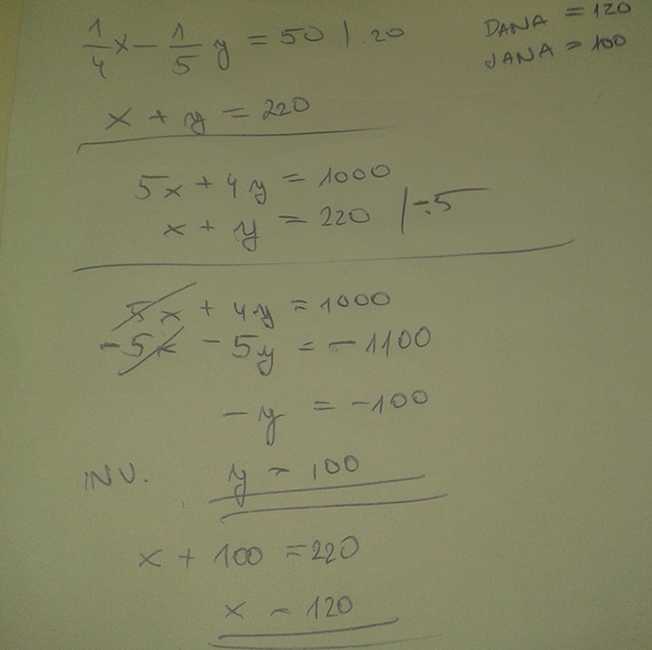 1/4 x - 1/5 y = 50 | . 20
DANA = 120
JANA = 100
x + y = 220
5x + 4y = 1000
x + y = 220 | -.5
5x + 4y = 1000
-5x - 5y = -1100
-y = -100
INV. y = 100
x + 100 = 220
x = 120